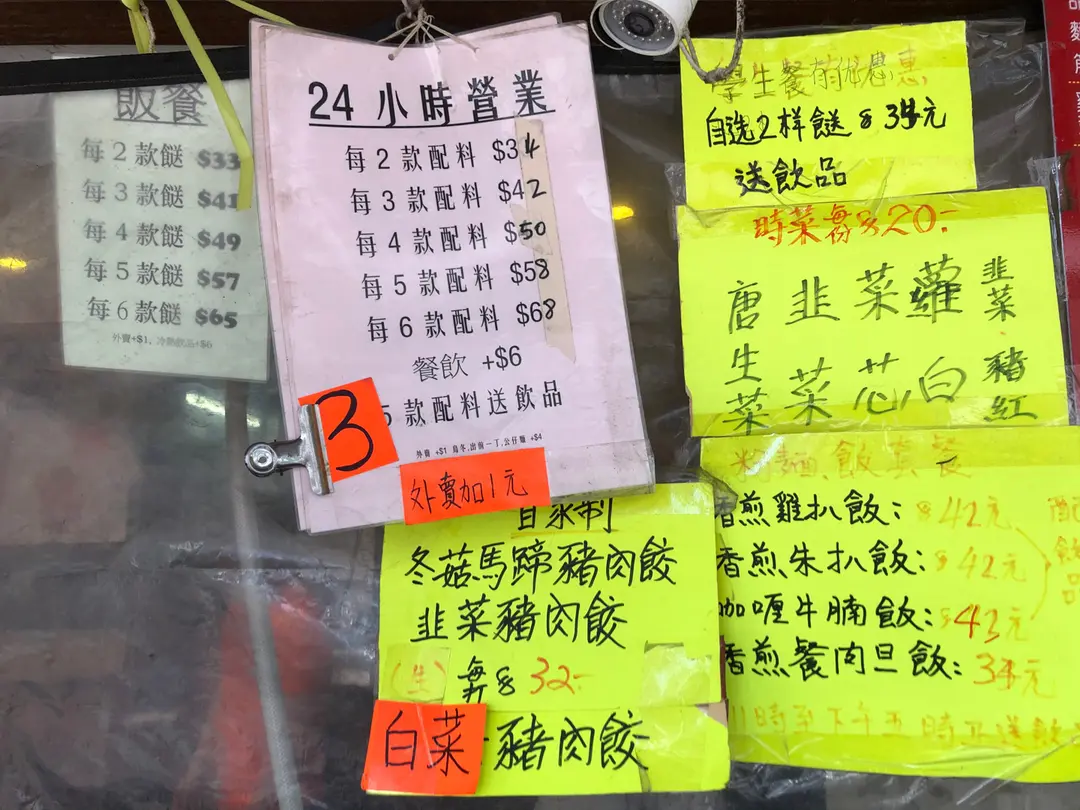 飯餐
每2款餸 $33
每3款餸 $41
每4款餸 $49
每5款餸 $57
每6款餸 $65
外賣+$1,
24小時營業
每2款配料 $34
每3款配料 $42
每4款配料 $50
每5款配料 $58
每6款配料 $68
餐飲 +$6
5款配料送飲品
外賣 +$1 烏冬,出前一丁,公仔麵 +$4
3
外賣加1元
自家制
冬菇馬蹄豬肉餃
韭菜豬肉餃
(生) 每斤$32-
白菜:豬肉餃
學生餐
自选2样餸$34元
送飲品
時菜每份$20-
唐生菜
韭菜
菜芯
蘿白
韭菜.豬紅
粉麵飯套餐
香煎雞扒飯:$42元
香煎朱扒飯:$42元
咖喱牛腩飯:$43元
香煎餐肉旦飯:34元
配飲品
11時至下午五時正送飲